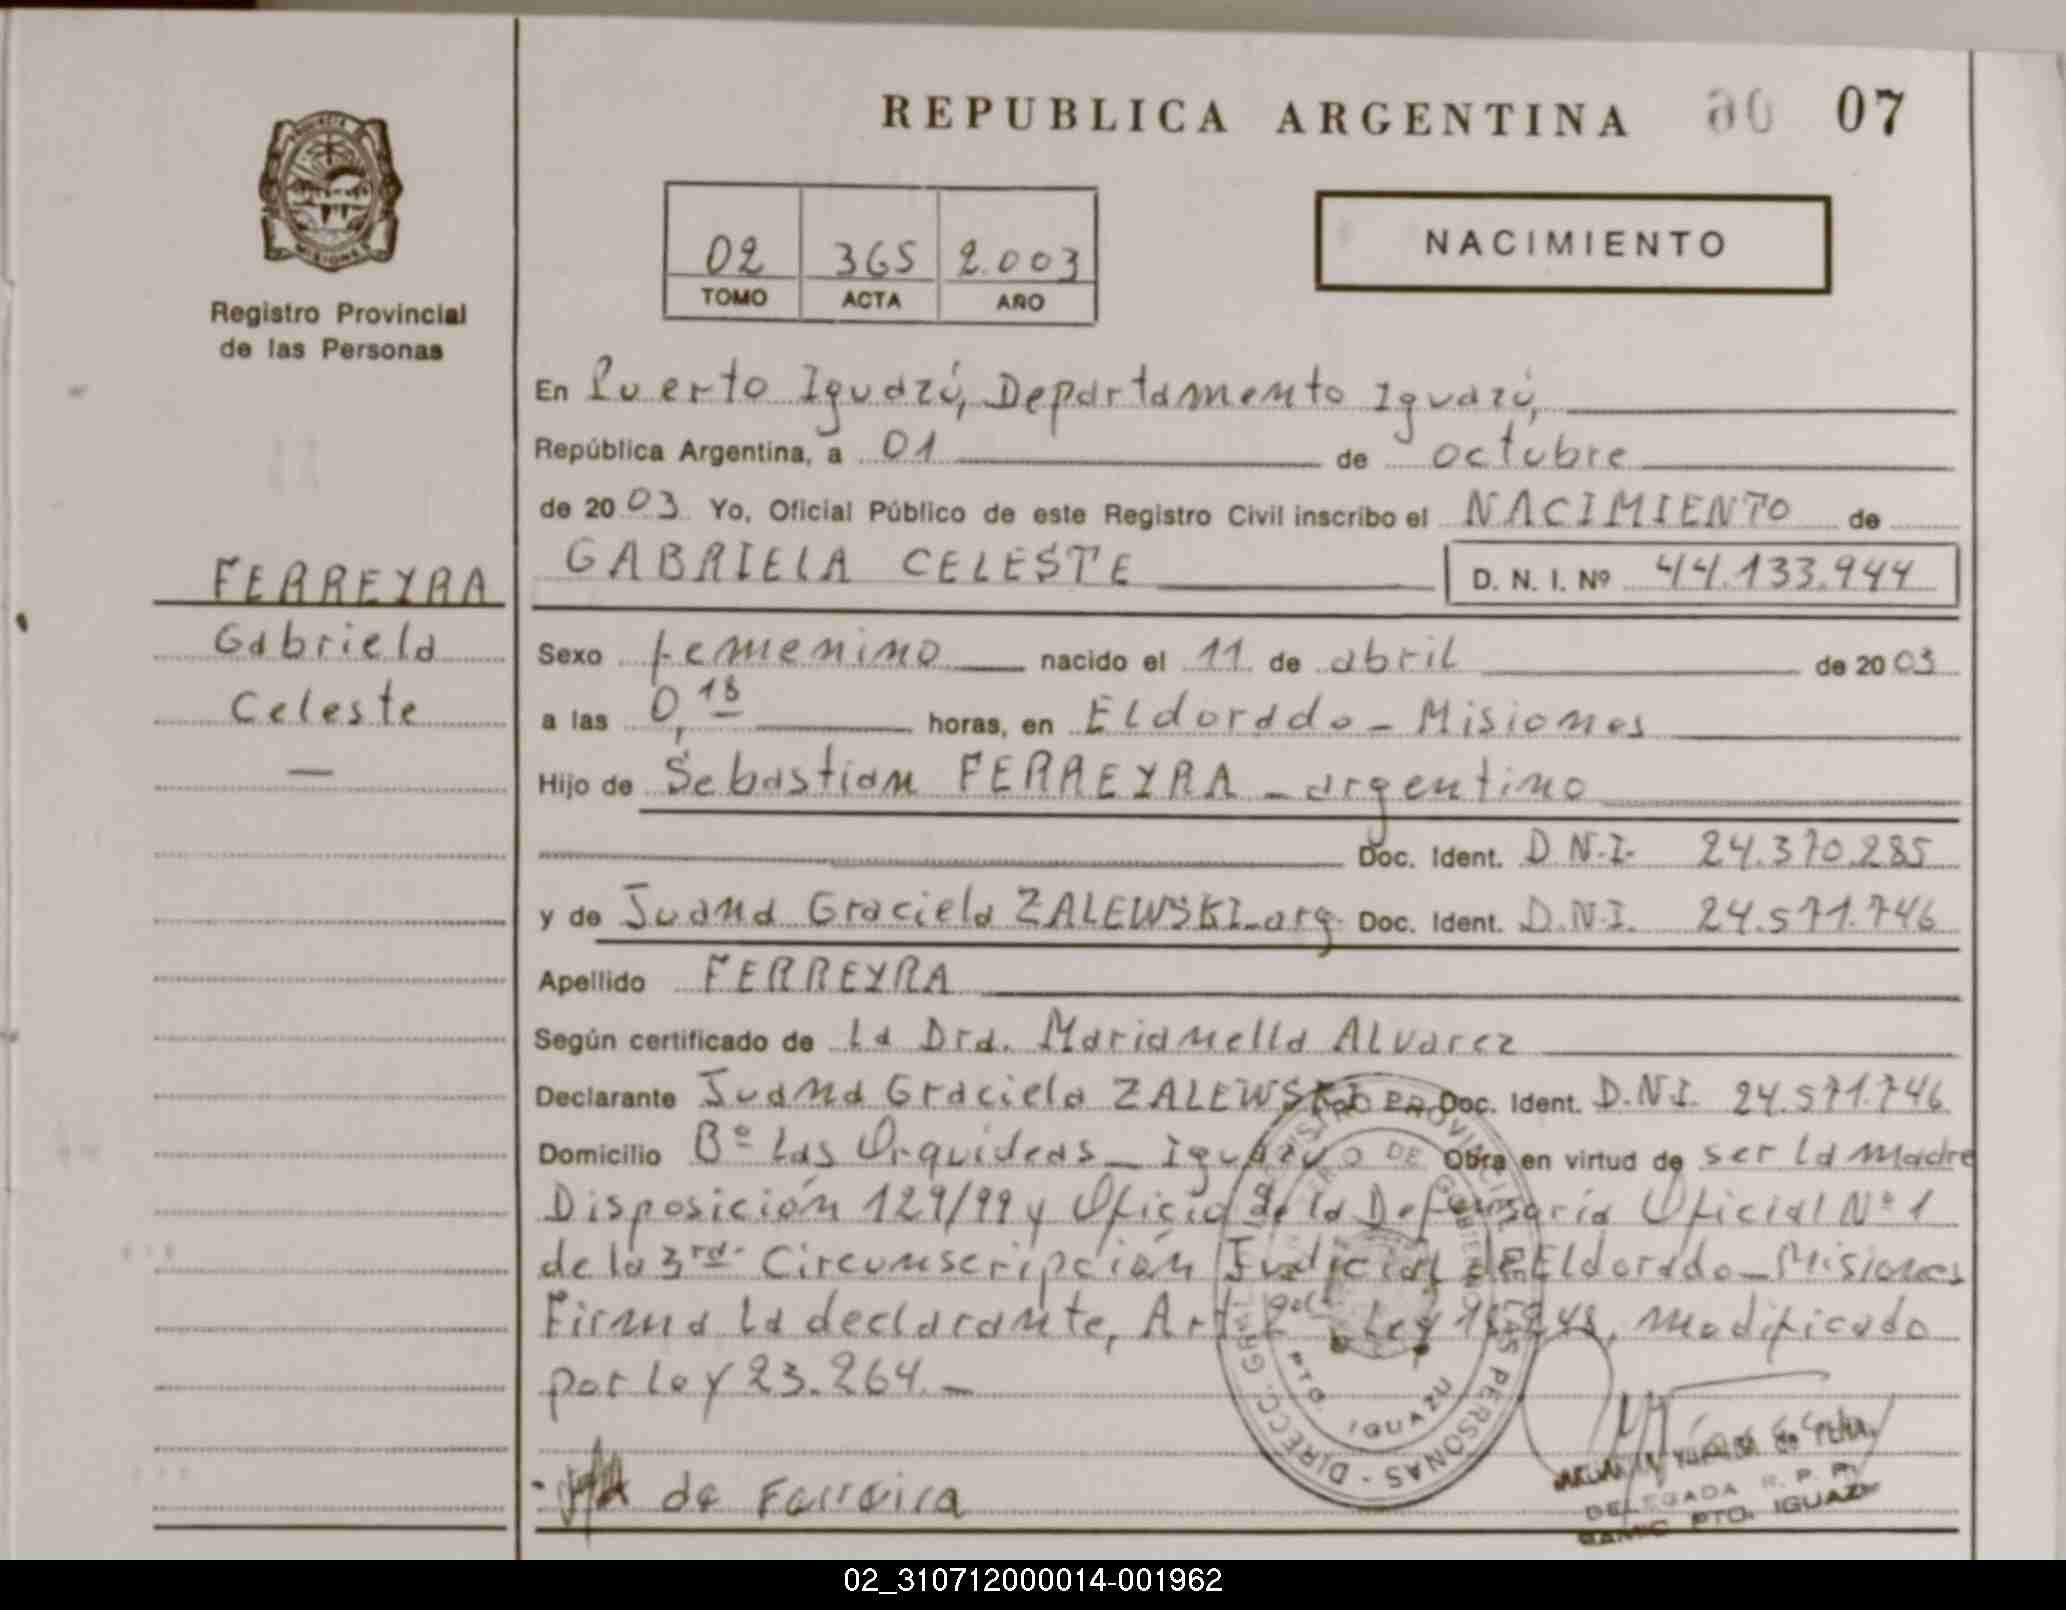 REPUBLICA ARGENTINA 07
PROVINCIA DE MISIONES
Registro Provincial
de las Personas
02 365 2.003
TOMO ACTA AÑO
NACIMIENTO
En Puerto Iguazú, Departamento Iguazú,
República Argentina, a 01 de octubre
de 20 03 Yo, Oficial Público de este Registro Civil inscribo el NACIMIENTO de
GABRIELA CELESTE D. N. I. Nº 44.133.944
FERREYRA
Gabriela
Celeste
—
Sexo femenino nacido el 11 de abril de 20 03
a las 0,18 horas, en Eldorado - Misiones
Hijo de Sebastian FERREYRA - argentino
Doc. Ident. D.N.I. 24.370.285
y de Juana Graciela ZALEWSKI - arg. Doc. Ident. D.N.I. 24.571.746
Apellido FERREYRA
Según certificado de La Dra. Marianella Alvarez
Declarante Juana Graciela ZALEWSKI Doc. Ident. D.N.I. 24.571.746
Domicilio Bº Las Orquideas - Iguazú Obra en virtud de ser la madre
Disposición 129/99 y Oficio de la Defensoría Oficial Nº 1
de la 3ra. Circunscripción Judicial de Eldorado - Misiones
Firma la declarante, Art. Ley 18.248, modificado
por Ley 23.264. -
de Ferreira
DIRECC. GRAL. REGISTRO PROVINCIAL DE LAS PERSONAS
GOBIERNO
PTO. IGUAZU
DELEGADA R. P. P.
PTO. IGUAZU
02_310712000014-001962